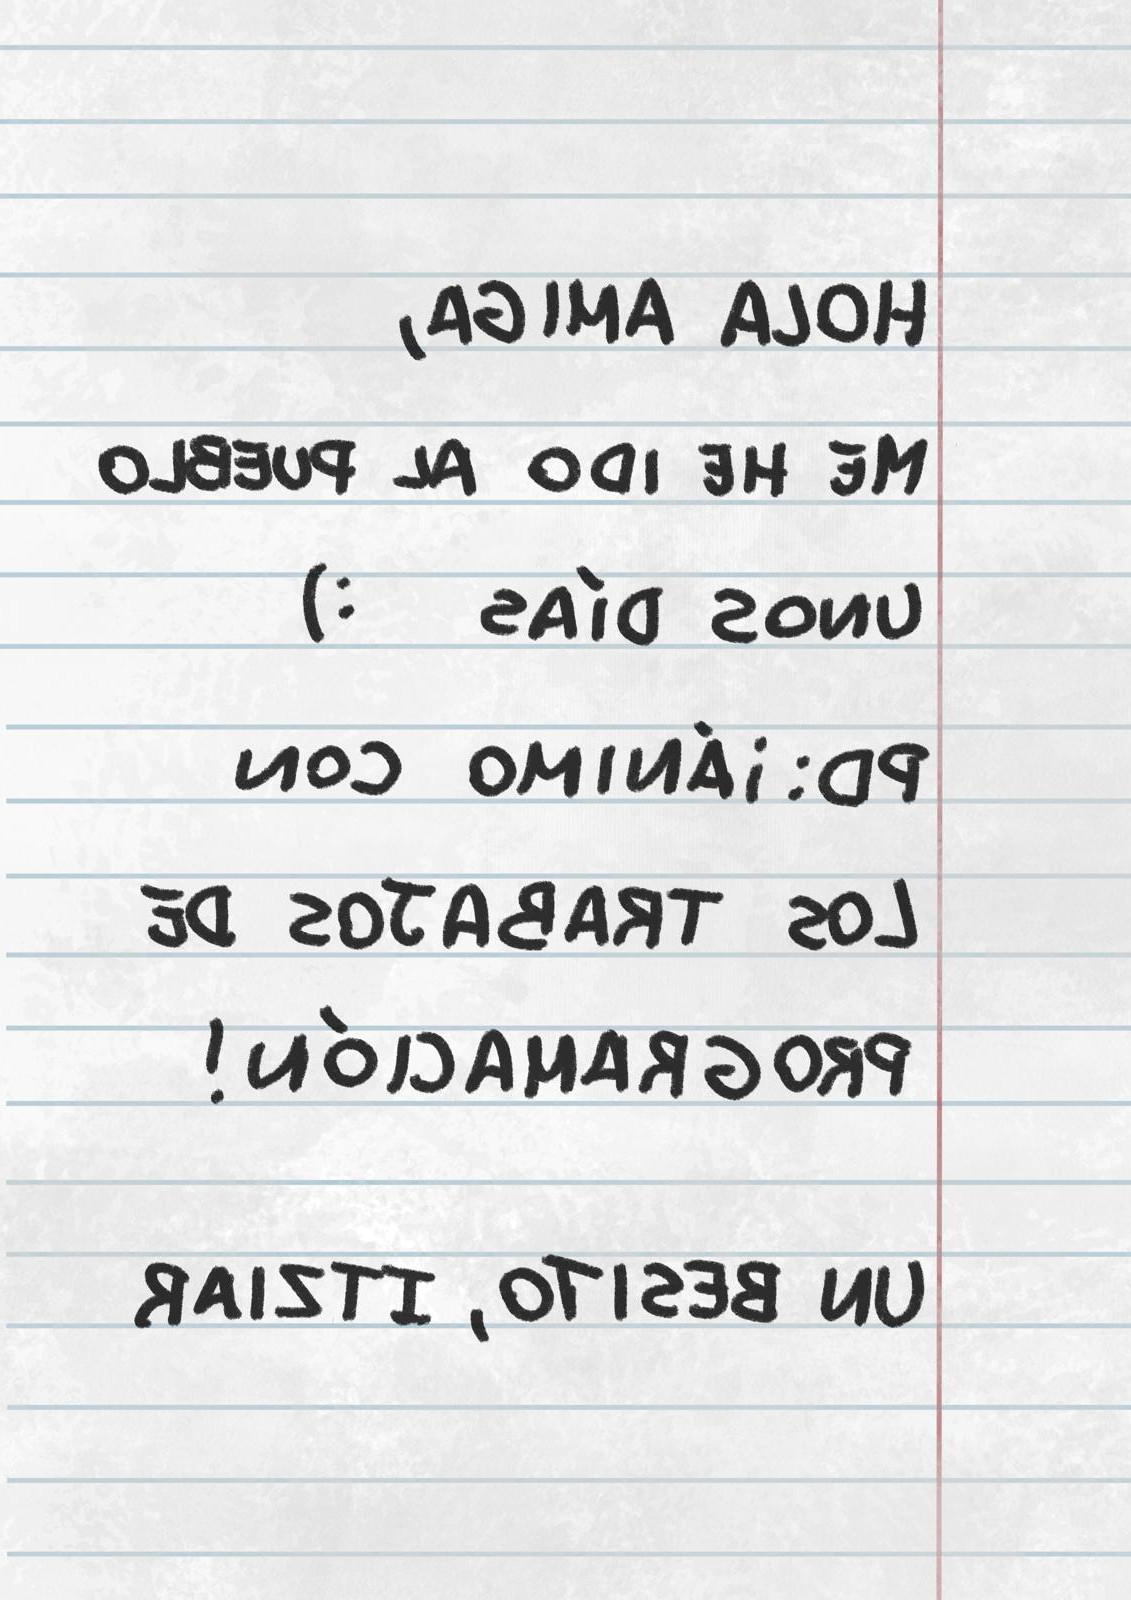 HOLA AMIGA,
ME HE IDO AL PUEBLO
UNOS DÍAS :)
PD:¡ÁNIMO CON
LOS TRABAJOS DE
PROGRAMACIÓN!
UN BESITO, ITZIAR